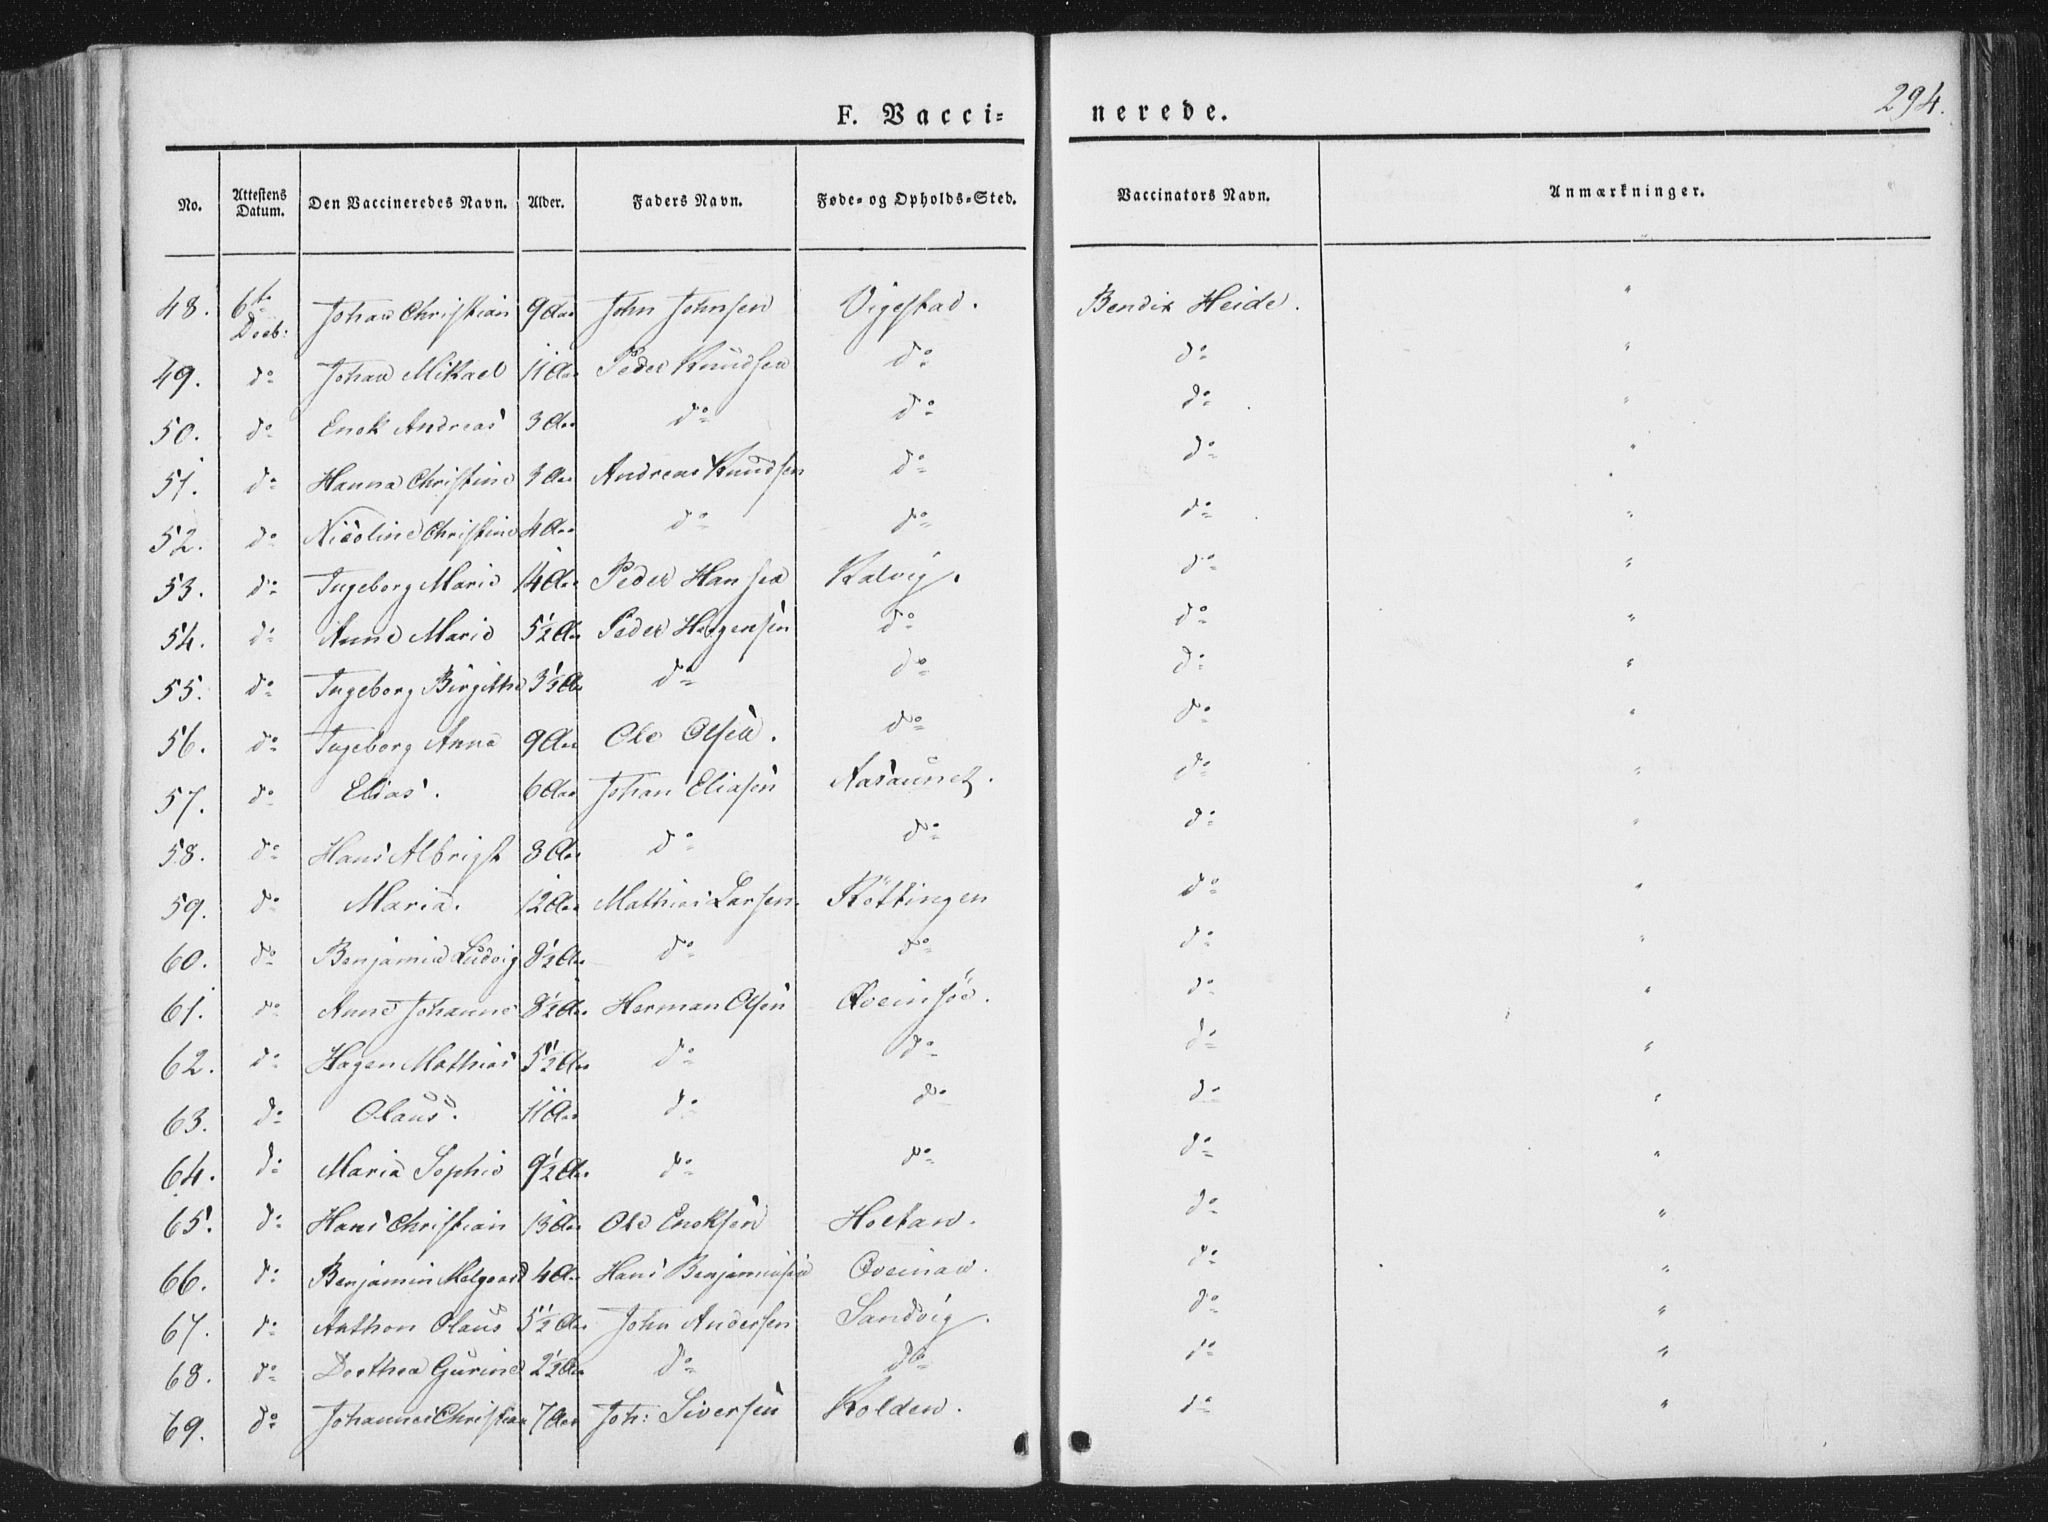 294.
F. Vacci= nerede.
No. Attestens Datum. Den Vaccineredes Navn. Alder. Faders Navn. Føde= og Opholds=Sted. Vaccinators Navn. Anmærkninger.
48. 6te Decb: Johan Christian 9 Aar John Johnsen Vigestad. Bendix Heide. "
49. do Johan Mikael 11 Aar Peder Knudsen do do "
50. do Enok Andreas 3 Aar do do do "
51. do Hanna Christine 3 Aar Andreas Knudsen do do "
52. do Nicoline Christine 4 Aar do do do "
53. do Ingeborg Marie 14 Aar Peder Hansen Kalvig. do "
54. do Anne Marie 5½ Aar Peder Hagensen do do "
55. do Ingeborg Birgithe 3½ Aar do do do "
56. do Ingeborg Anna 9 Aar Ole Olsen. do do "
57. do Elias. 6 Aar Johan Eliasen Aasaunet. do "
58. do Hans Albrigt 8 Aar do do do "
59. do Maria. 12 Aar Mathias Larsen. Kottingen do "
60. do Benjamin Ludvig 8½ Aar do do do "
61. do Anne Johanne 8½ Aar Herman Olsen Qveinsöe. do "
62. do Hagen Mathias 5½ Aar do do do "
63. do Olaus. 11 Aar do do do "
64. do Maria Sophie 9½ Aar do do do "
65. do Hans Christian 13 Aar Ole Enoksen Hoetan. do "
66. do Benjamin Melgaard 4 Aar Hans Benjaminsen Qveinan. do "
67. do Anthon Olaus 5½ Aar John Andersen Sandvig. do "
68. do Dorthea Gurine 2½ Aar do do do "
69. do Johannes Christian 7 Aar Joh: Siversen Kolden. do "